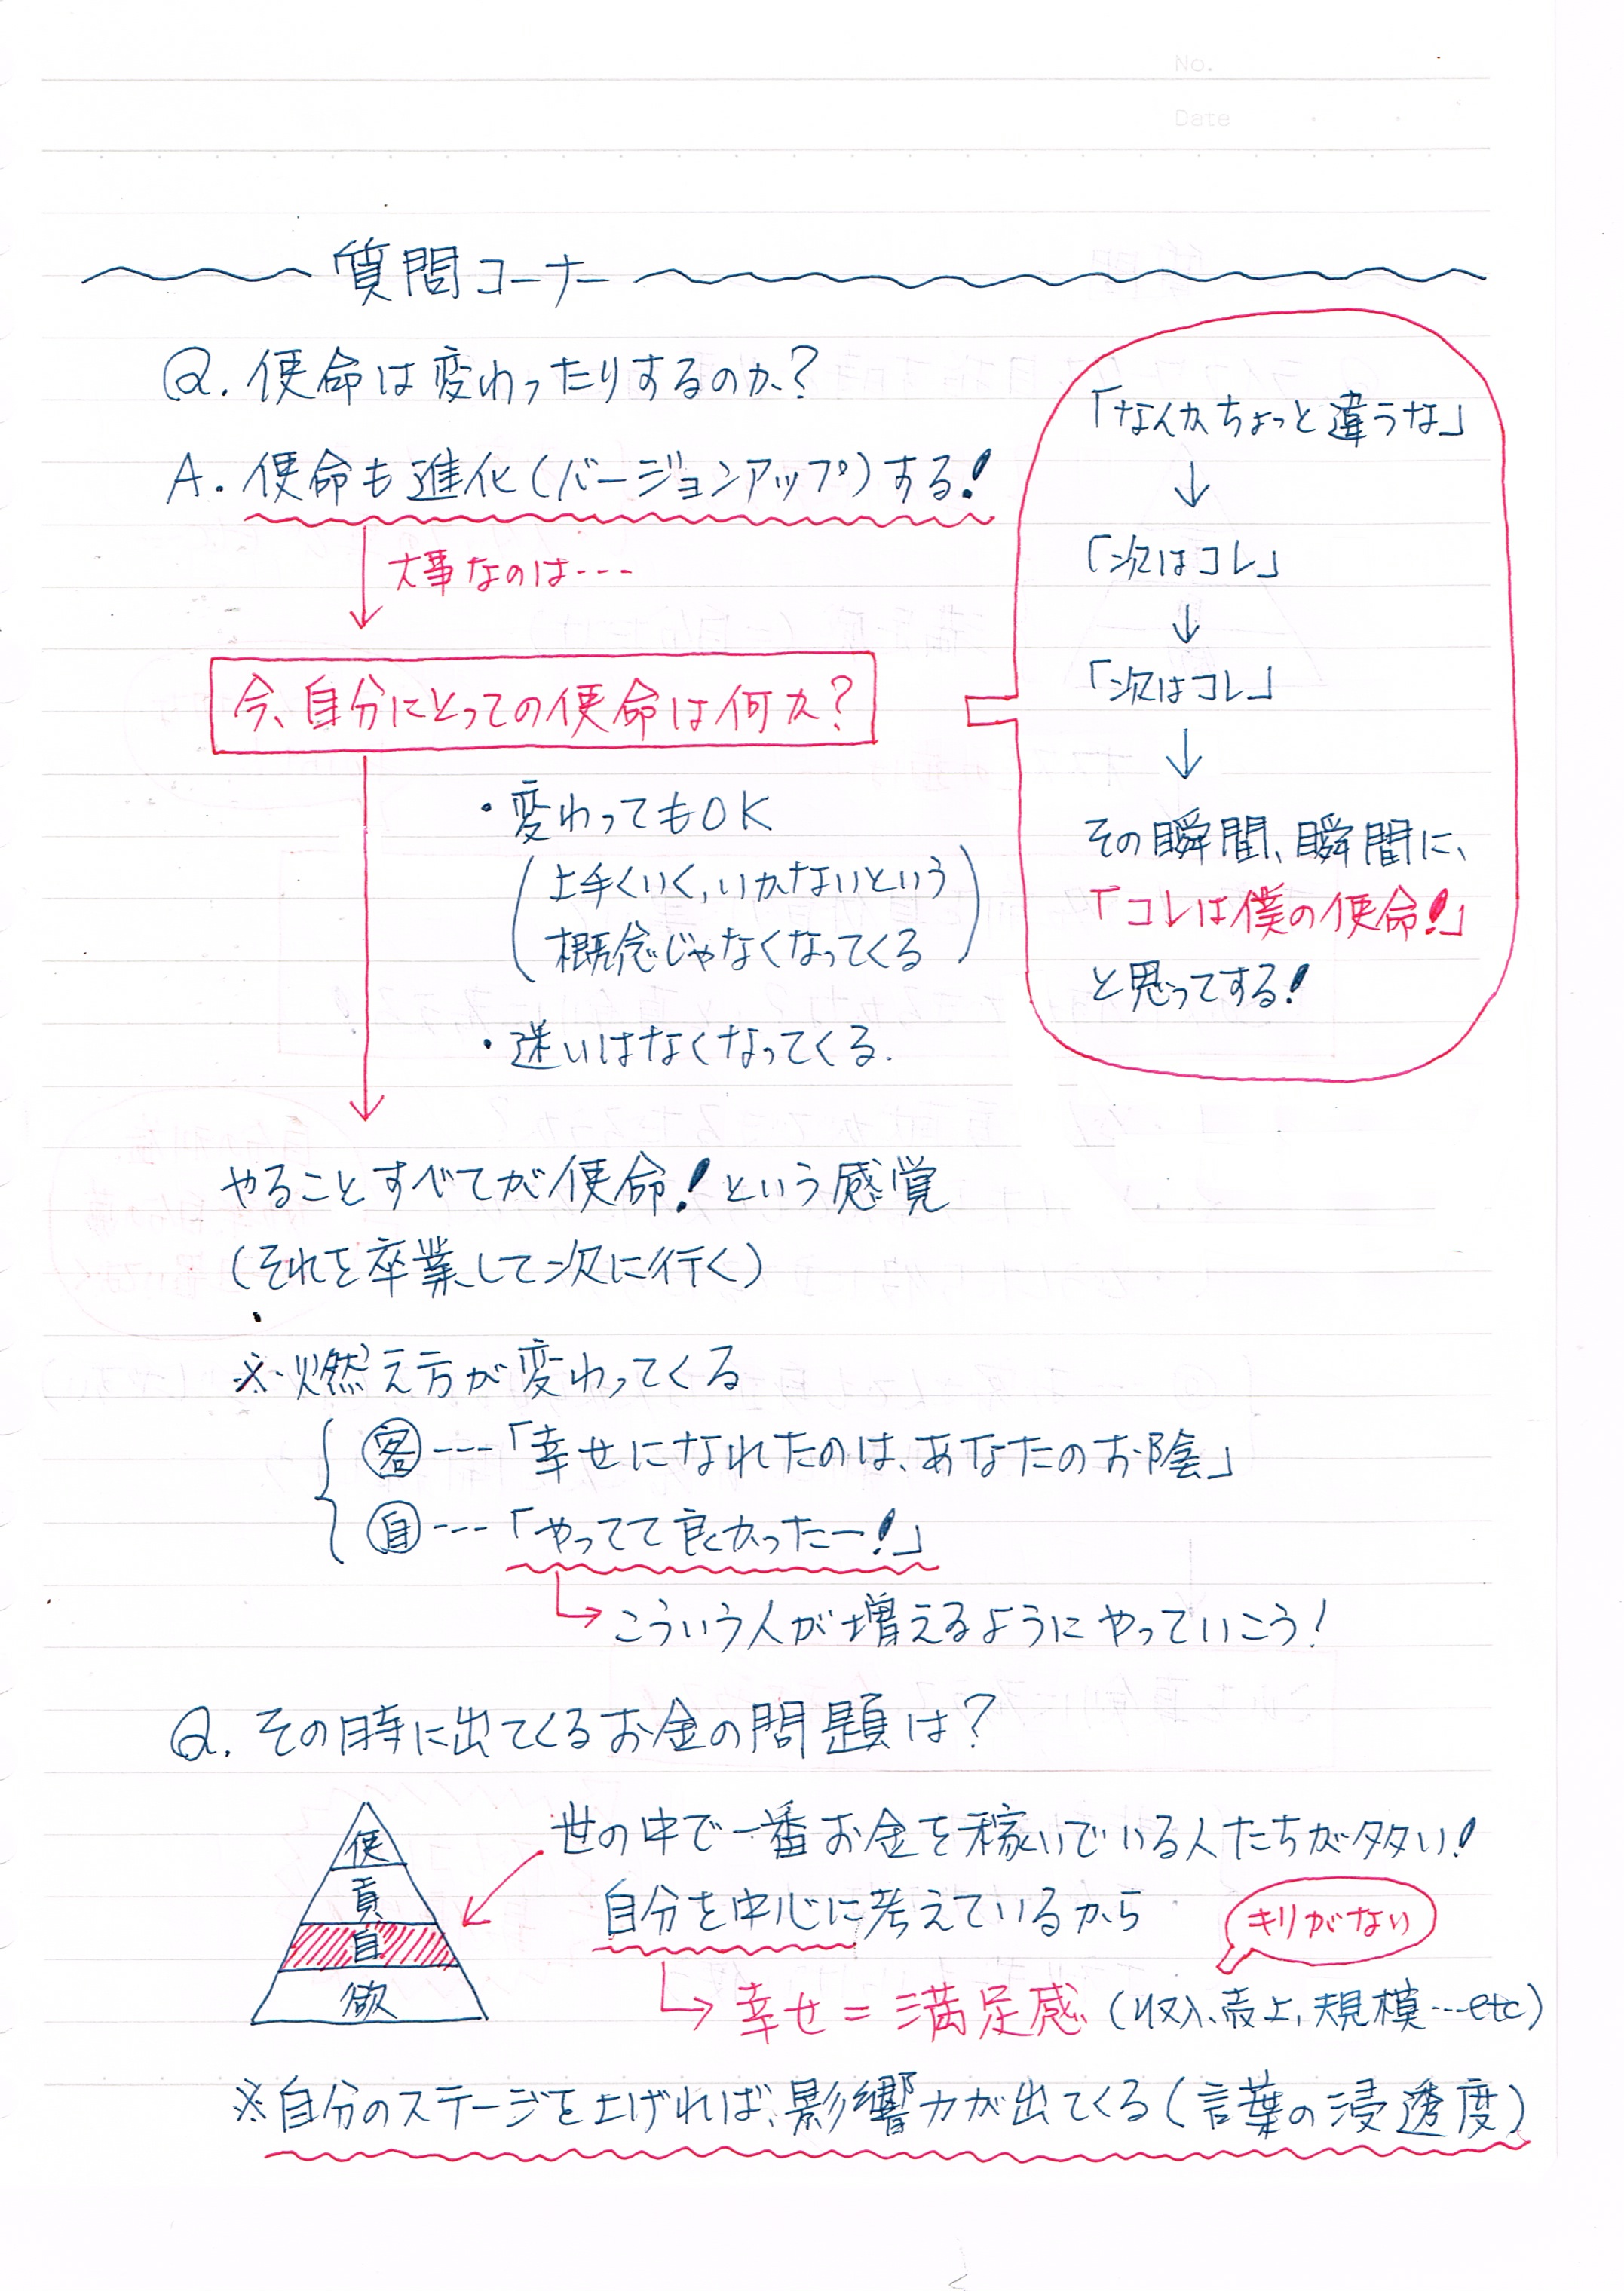 No.
Date
質問コーナー
Q. 使命は変わったりするのか?
A. 使命も進化(バージョンアップ)する!
大事なのは---
今、自分にとっての使命は何か?
・変わってもOK
(上手くいく,いかないという
概念じゃなくなってくる)
・迷いはなくなってくる.
「なんかちょっと違うな」
↓
「次はコレ」
↓
「次はコレ」
↓
その瞬間、瞬間に、
「コレは僕の使命!」
と思ってする!
やることすべてが使命!という感覚
(それを卒業して次に行く)
※燃え方が変わってくる
客---「幸せになれたのは、あなたのお陰」
自---「やってて良かったー!」
こういう人が増えるようにやっていこう!
Q. その時に出てくるお金の問題は?
使
貢
自
欲
世の中で一番お金を稼いでいる人たちが多い!
自分を中心に考えているから
キリがない
幸せ=満足感(収入、売上,規模---etc)
※自分のステージを上げれば、影響力が出てくる(言葉の浸透度)